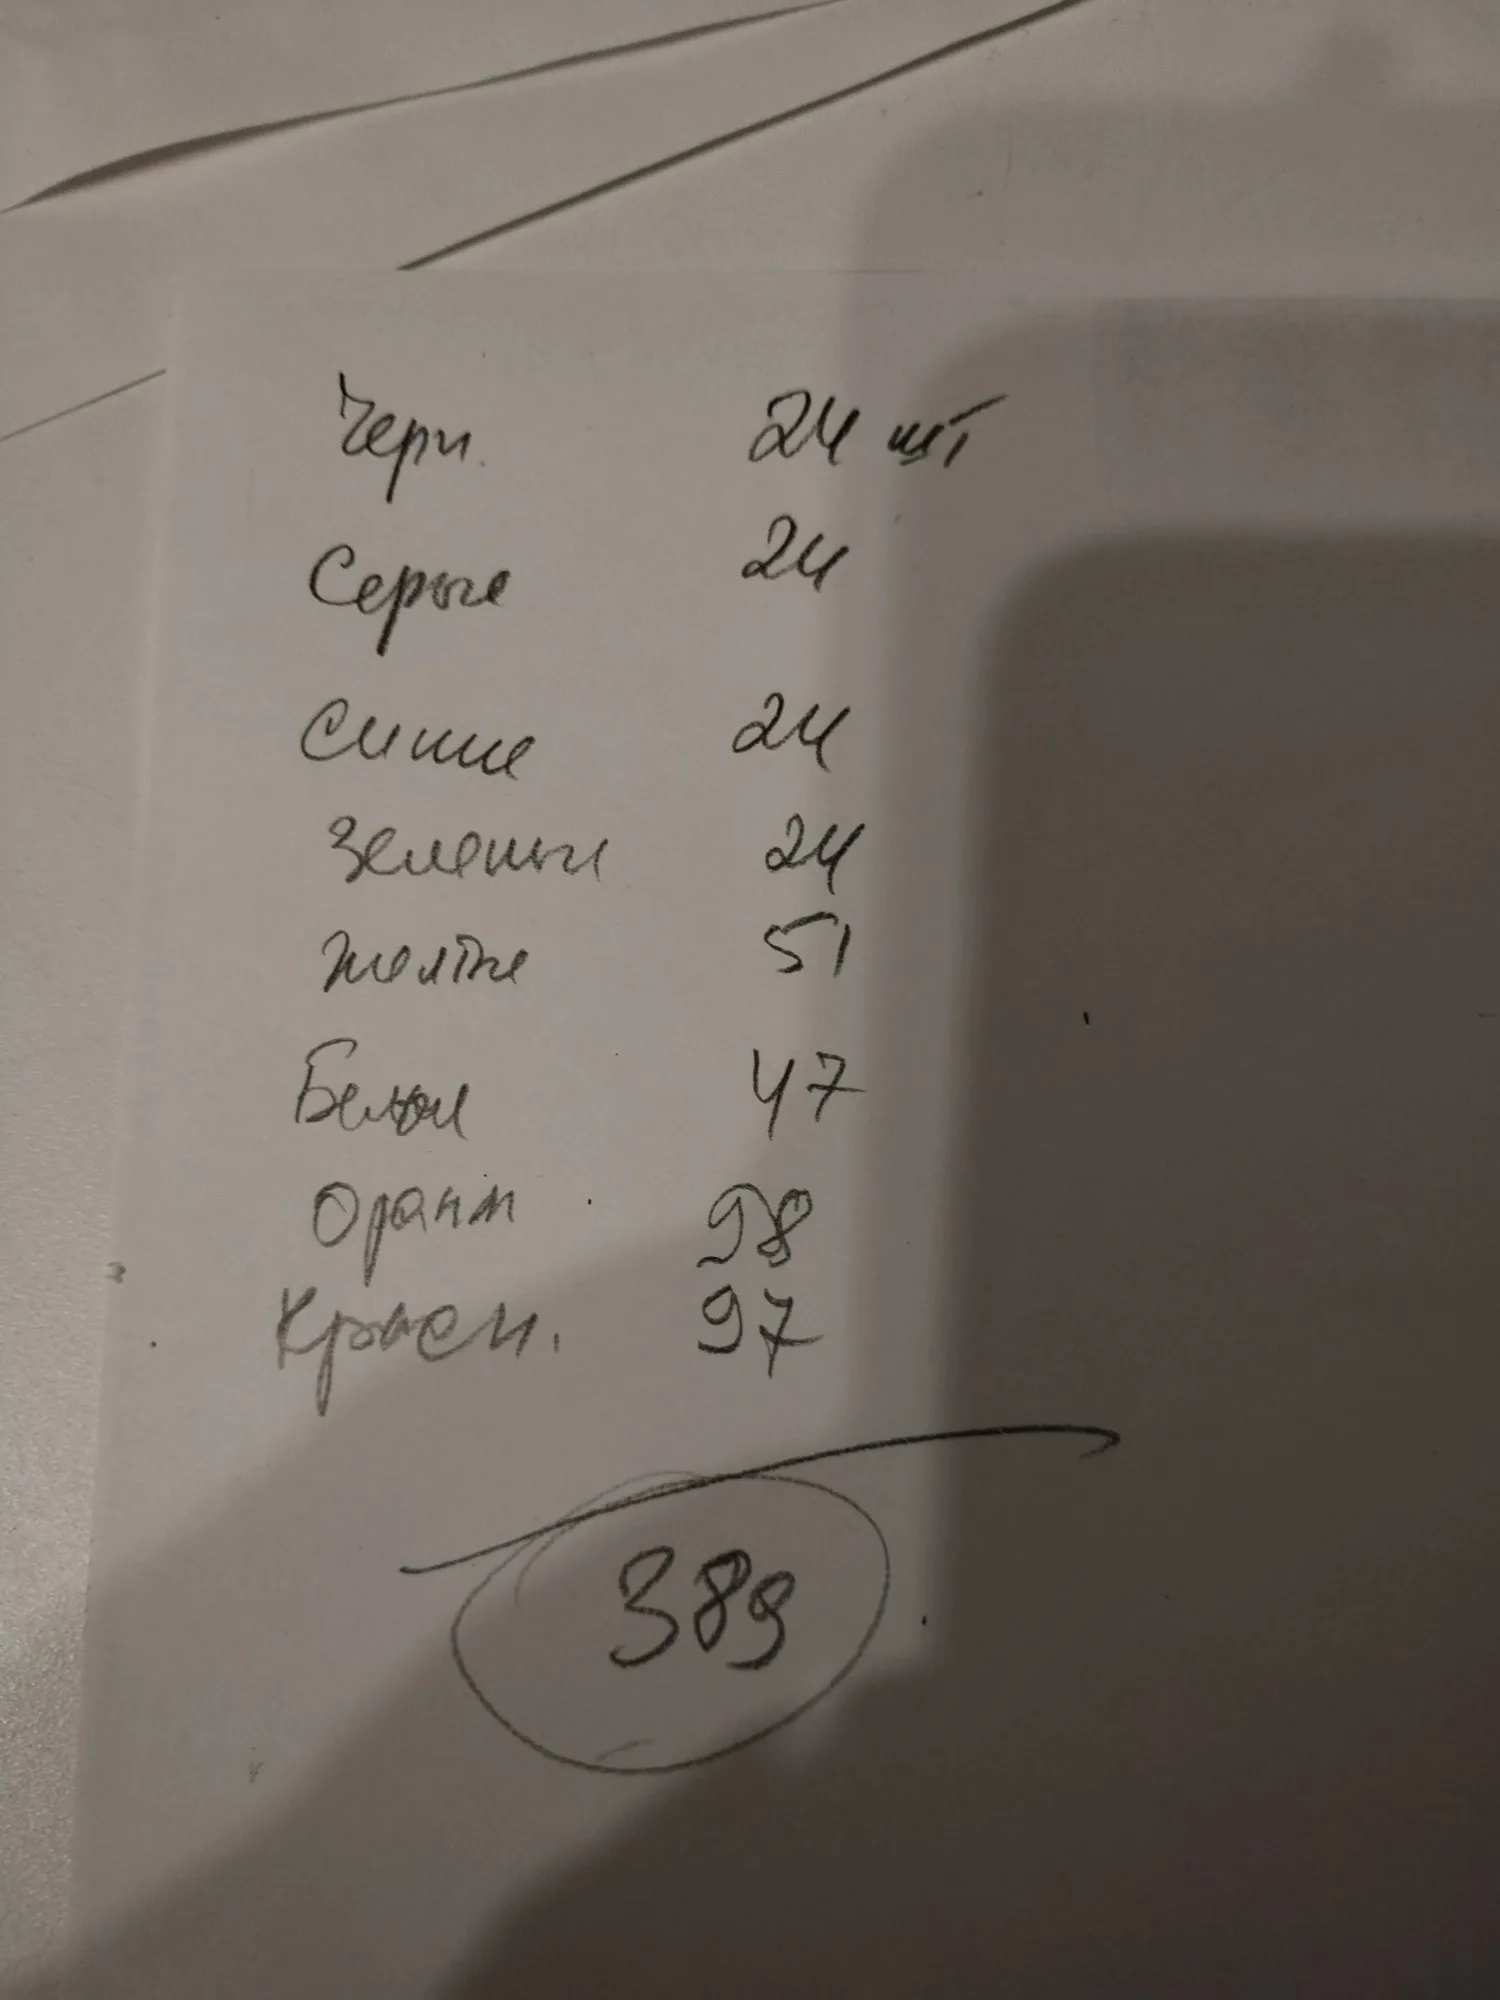 Черн. 24 шт
Серые 24
Синие 24
Зеленые 24
Желтые 51
Белые 47
Оранж 98
Красн. 97
389